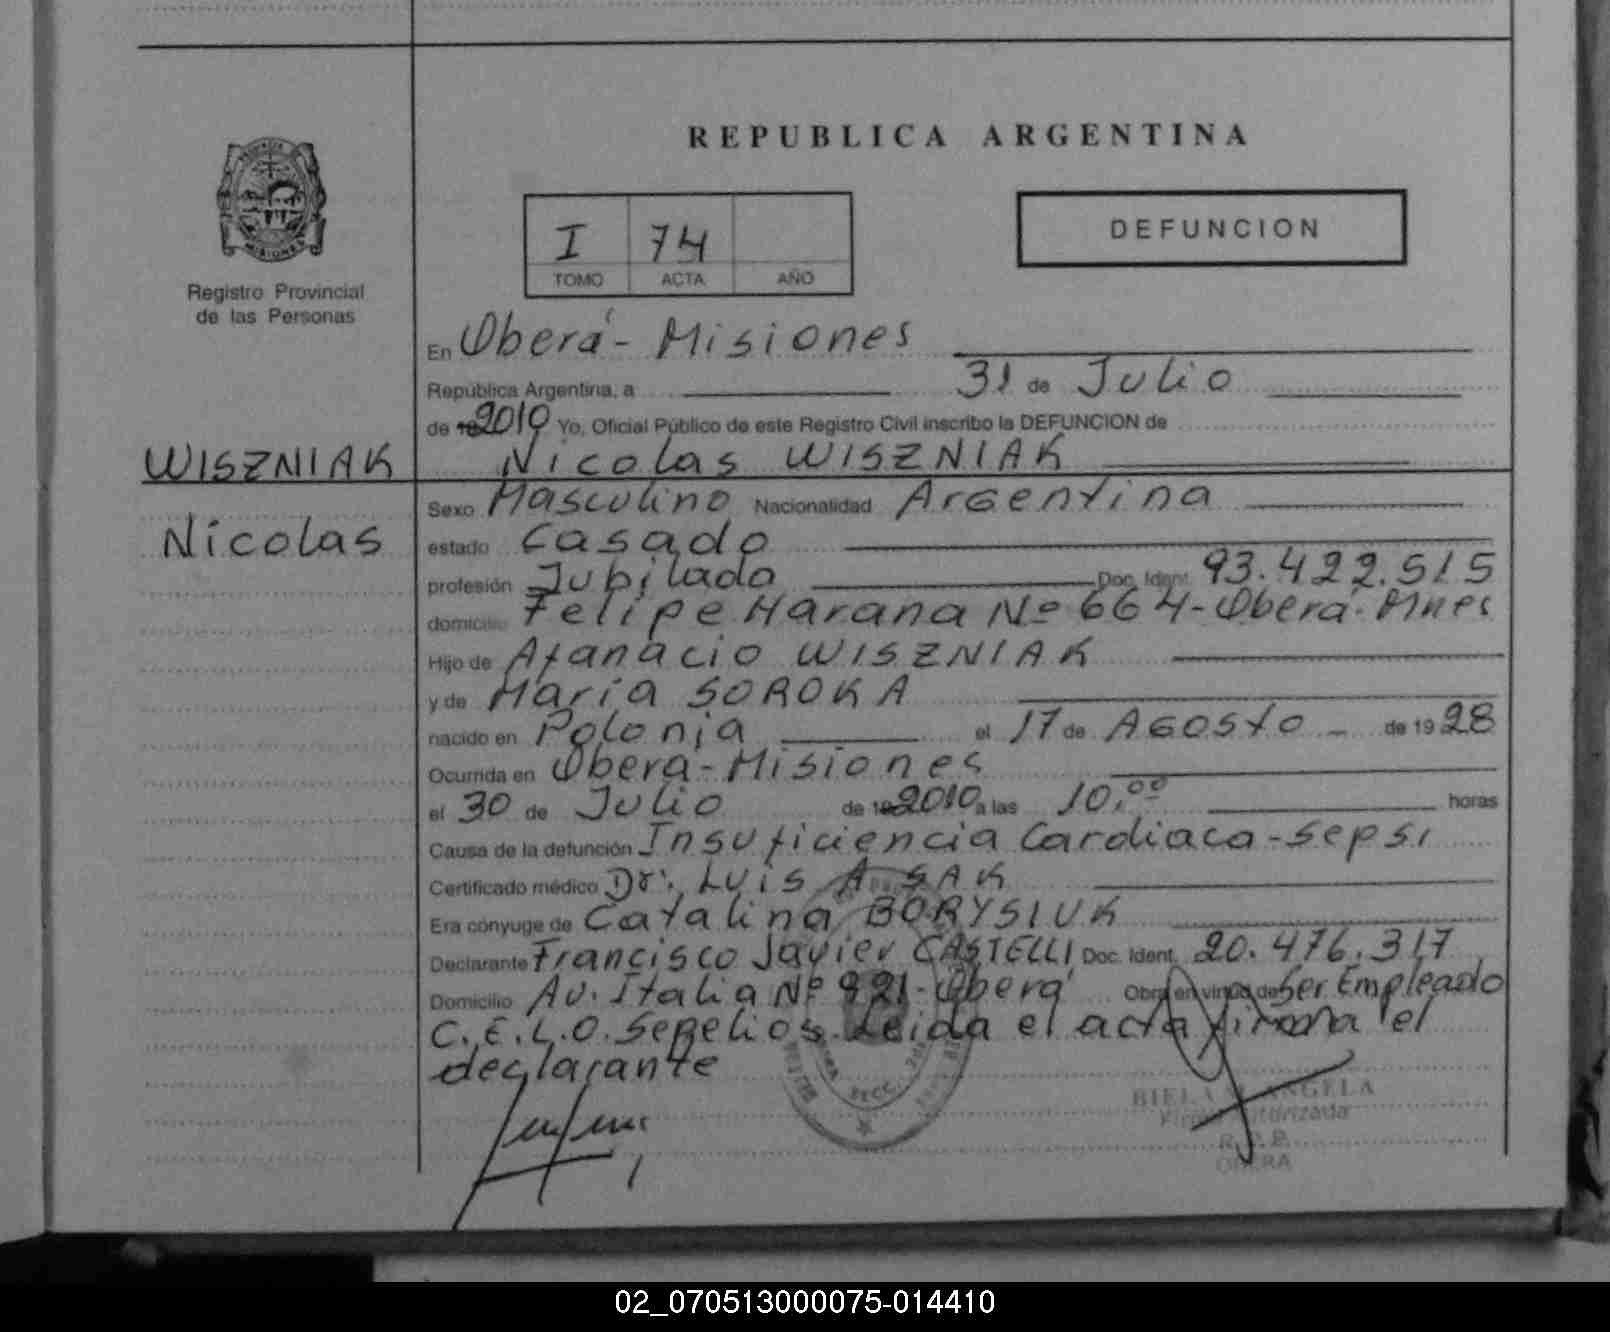 REPUBLICA ARGENTINA
I 74
TOMO ACTA AÑO
DEFUNCION
MISIONES
Registro Provincial
de las Personas
WISZNIAK
Nicolas
En Oberá - Misiones
República Argentina, a 31 de Julio
de 19 2010 Yo, Oficial Público de este Registro Civil inscribo la DEFUNCION de
Nicolas WISZNIAK
Sexo Masculino Nacionalidad Argentina
estado Casado
profesión Jubilado Doc. Ident. 93.422.515
domicilio Felipe Harana Nº 664 - Oberá - Mnes
Hijo de Afanacio WISZNIAK
y de María SOROKA
nacido en Polonia el 17 de Agosto de 19 28
Ocurrida en Oberá - Misiones
el 30 de Julio de 19 2010 a las 10,00 horas
Causa de la defunción Insuficiencia Cardiaca - Sepsi
Certificado médico Dr. Luis A SAK
Era cónyuge de Catalina BORYSIUK
Declarante Francisco Javier CASTELLI Doc. Ident. 20.476.317
Domicilio Av. Italia Nº 921 - Oberá Obra en virtud de Ser Empleado
C.E.L.O. Sepelios. Leida el acta firma el
declarante
BIELA ANGELA
Firma Autorizada
R.P.P.
OBERA
02_070513000075-014410